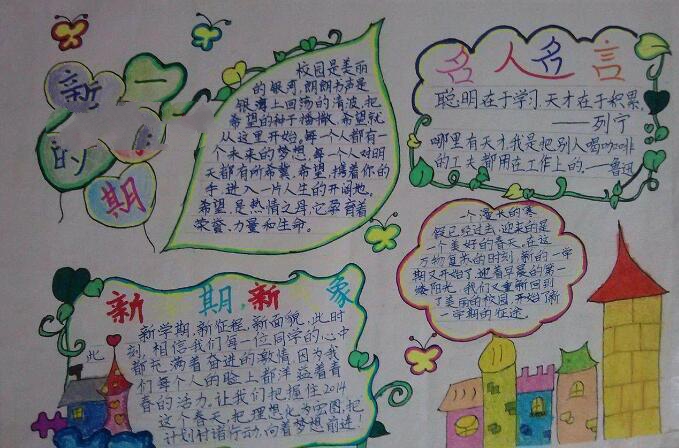 新一
的
期
校园是美丽
的银河,朗朗书声是
银海上回荡的清波。把
希望的种子播撒,希望就
从这里开始。每一个人都有一
个未来的梦想,每一个人对明
天都有所希冀,希望,携着你的
手进入一片人生的开阔地。
希望,是热情之母,它孕育着
荣誉、力量和生命。
名人名言
聪明在于学习,天才在于积累。
——列宁
哪里有天才,我是把别人喝咖啡
的工夫都用在工作上的.——鲁迅
一个漫长的寒
假已经过去,迎来的是
一个美好的春天。在这
万物复苏的时刻,新的一学
期又开始了,迎着早晨的第一
缕阳光,我们又重新回到
了美丽的校园,开始了新
一学期的征途。
新 期新 象
新学期,新征程,新面貌,此时
此刻,相信我们每一位同学的心中
都充满着奋进的激情,因为我
们每个人的脸上都洋溢着青
春的活力,让我们把握住2014
这个春天,把理想化为宏图,把
计划付诸行动,向着梦想前进!